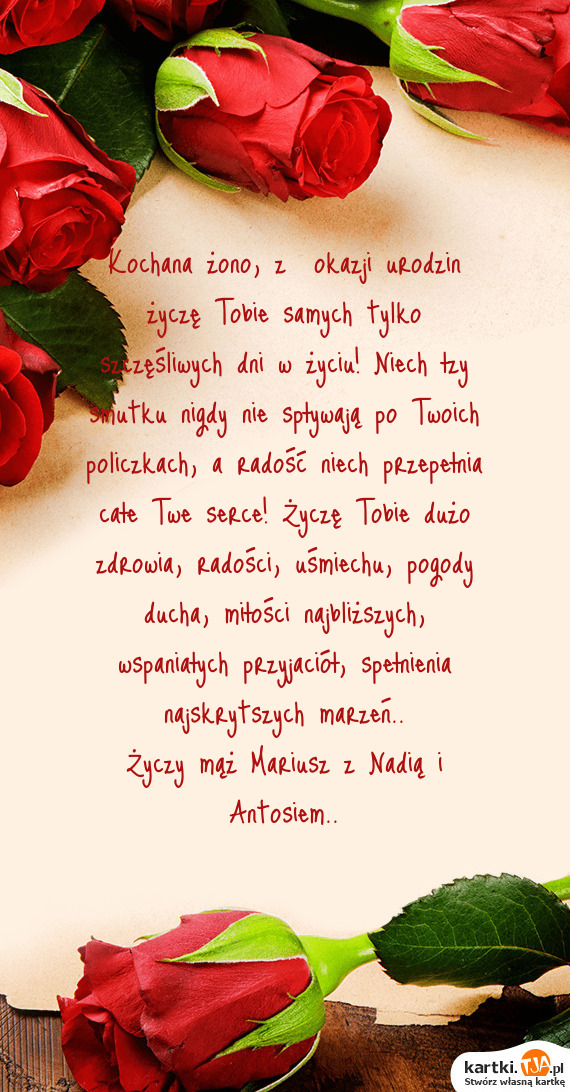 Kochana żono, z okazji urodzin
życzę Tobie samych tylko
szczęśliwych dni w życiu! Niech łzy
smutku nigdy nie spływają po Twoich
policzkach, a radość niech przepełnia
całe Twe serce! Życzę Tobie dużo
zdrowia, radości, uśmiechu, pogody
ducha, miłości najbliższych,
wspaniałych przyjaciół, spełnienia
najskrytszych marzeń..
Życzy mąż Mariusz z Nadią i
Antosiem..
kartki.TJA.pl
Stwórz własną kartkę